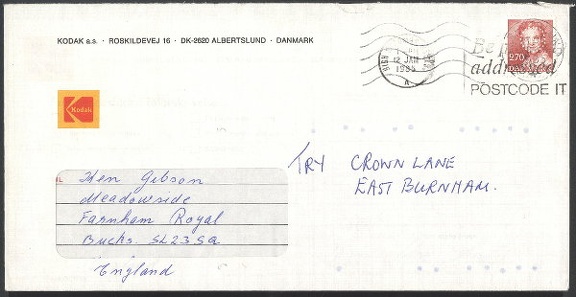 KODAK a.s. · ROSKILDEVEJ 16 · DK-2620 ALBERTSLUND · DANMARK
12 JAN
1985
A
Be
addressed
POSTCODE IT
2.70
Kodak
TRY CROWN LANE
EAST BURNHAM.
Ken Gibson
Meadowside
Farnham Royal
Bucks. SL2 3SQ
England